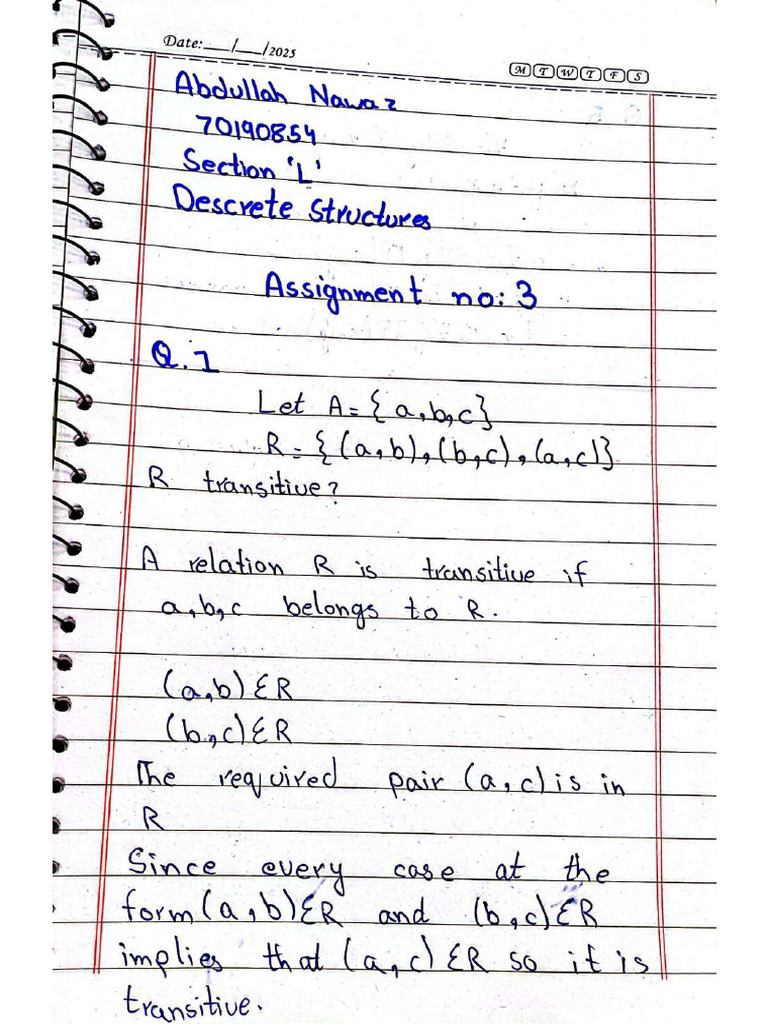 Date:___/___/2025
M T W T F S
Abdullah Nawaz
70190854
Section 'L'
Descrete Structures
Assignment no: 3
Q.1
Let A = {a,b,c}
R = {(a,b),(b,c),(a,c)}
R transitive?
A relation R is transitive if
a,b,c belongs to R.
(a,b) ƐR
(b,c) ƐR
The required pair (a,c) is in
R
Since every case at the
form (a,b) ƐR and (b,c) ƐR
implies that (a,c) ƐR so it is
transitive.